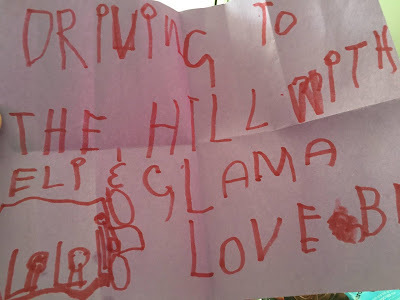 DRIVING TO
THE HILL WITH
ELI & GLAMA
LOVE